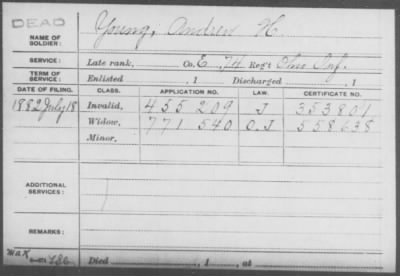 DEAD
NAME OF SOLDIER: Young, Andrew H.
SERVICE: Late rank, Co. E, 74 Reg't Ohio Inf.
TERM OF SERVICE: Enlisted , 1 Discharged , 1
DATE OF FILING. CLASS. APPLICATION NO. LAW. CERTIFICATE NO.
1882 July 18 Invalid, 455 209 J 353801
Widow, 771 540 O.J 558638
Minor,
ADDITIONAL SERVICES:
REMARKS:
Died , 1 , at